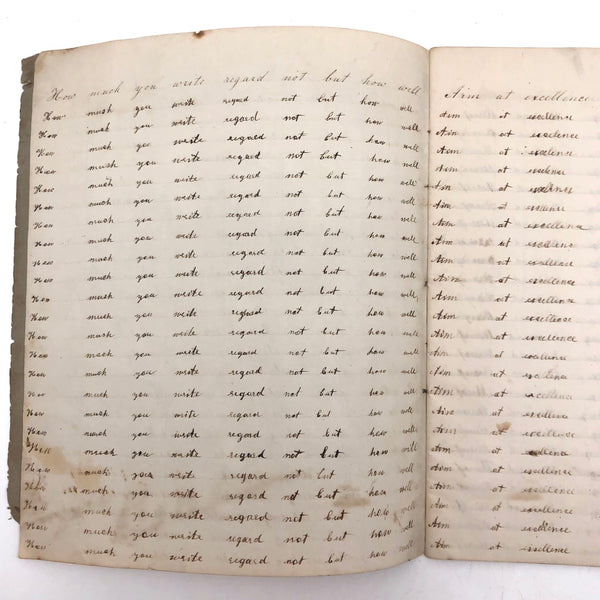 How much you write regard not but how well
How much you write regard not but how well
How much you write regard not but how well
How much you write regard not but how well
How much you write regard not but how well
How much you write regard not but how well
How much you write regard not but how well
How much you write regard not but how well
How much you write regard not but how well
How much you write regard not but how well
How much you write regard not but how well
How much you write regard not but how well
How much you write regard not but how well
How much you write regard not but how well
How much you write regard not but how well
How much you write regard not but how well
How much you write regard not but how well
How much you write regard not but how well
How much you write regard not but how well
How much you write regard not but how well
How much you write regard not but how well
How much you write regard not but how well
How much you write regard not but how well
How much you write regard not but how well
How much you write regard not but how well
Aim at excellence
Aim at excellence
Aim at excellence
Aim at excellence
Aim at excellence
Aim at excellence
Aim at excellence
Aim at excellence
Aim at excellence
Aim at excellence
Aim at excellence
Aim at excellence
Aim at excellence
Aim at excellence
Aim at excellence
Aim at excellence
Aim at excellence
Aim at excellence
Aim at excellence
Aim at excellence
Aim at excellence
Aim at excellence
Aim at excellence
Aim at excellence
Aim at excellence